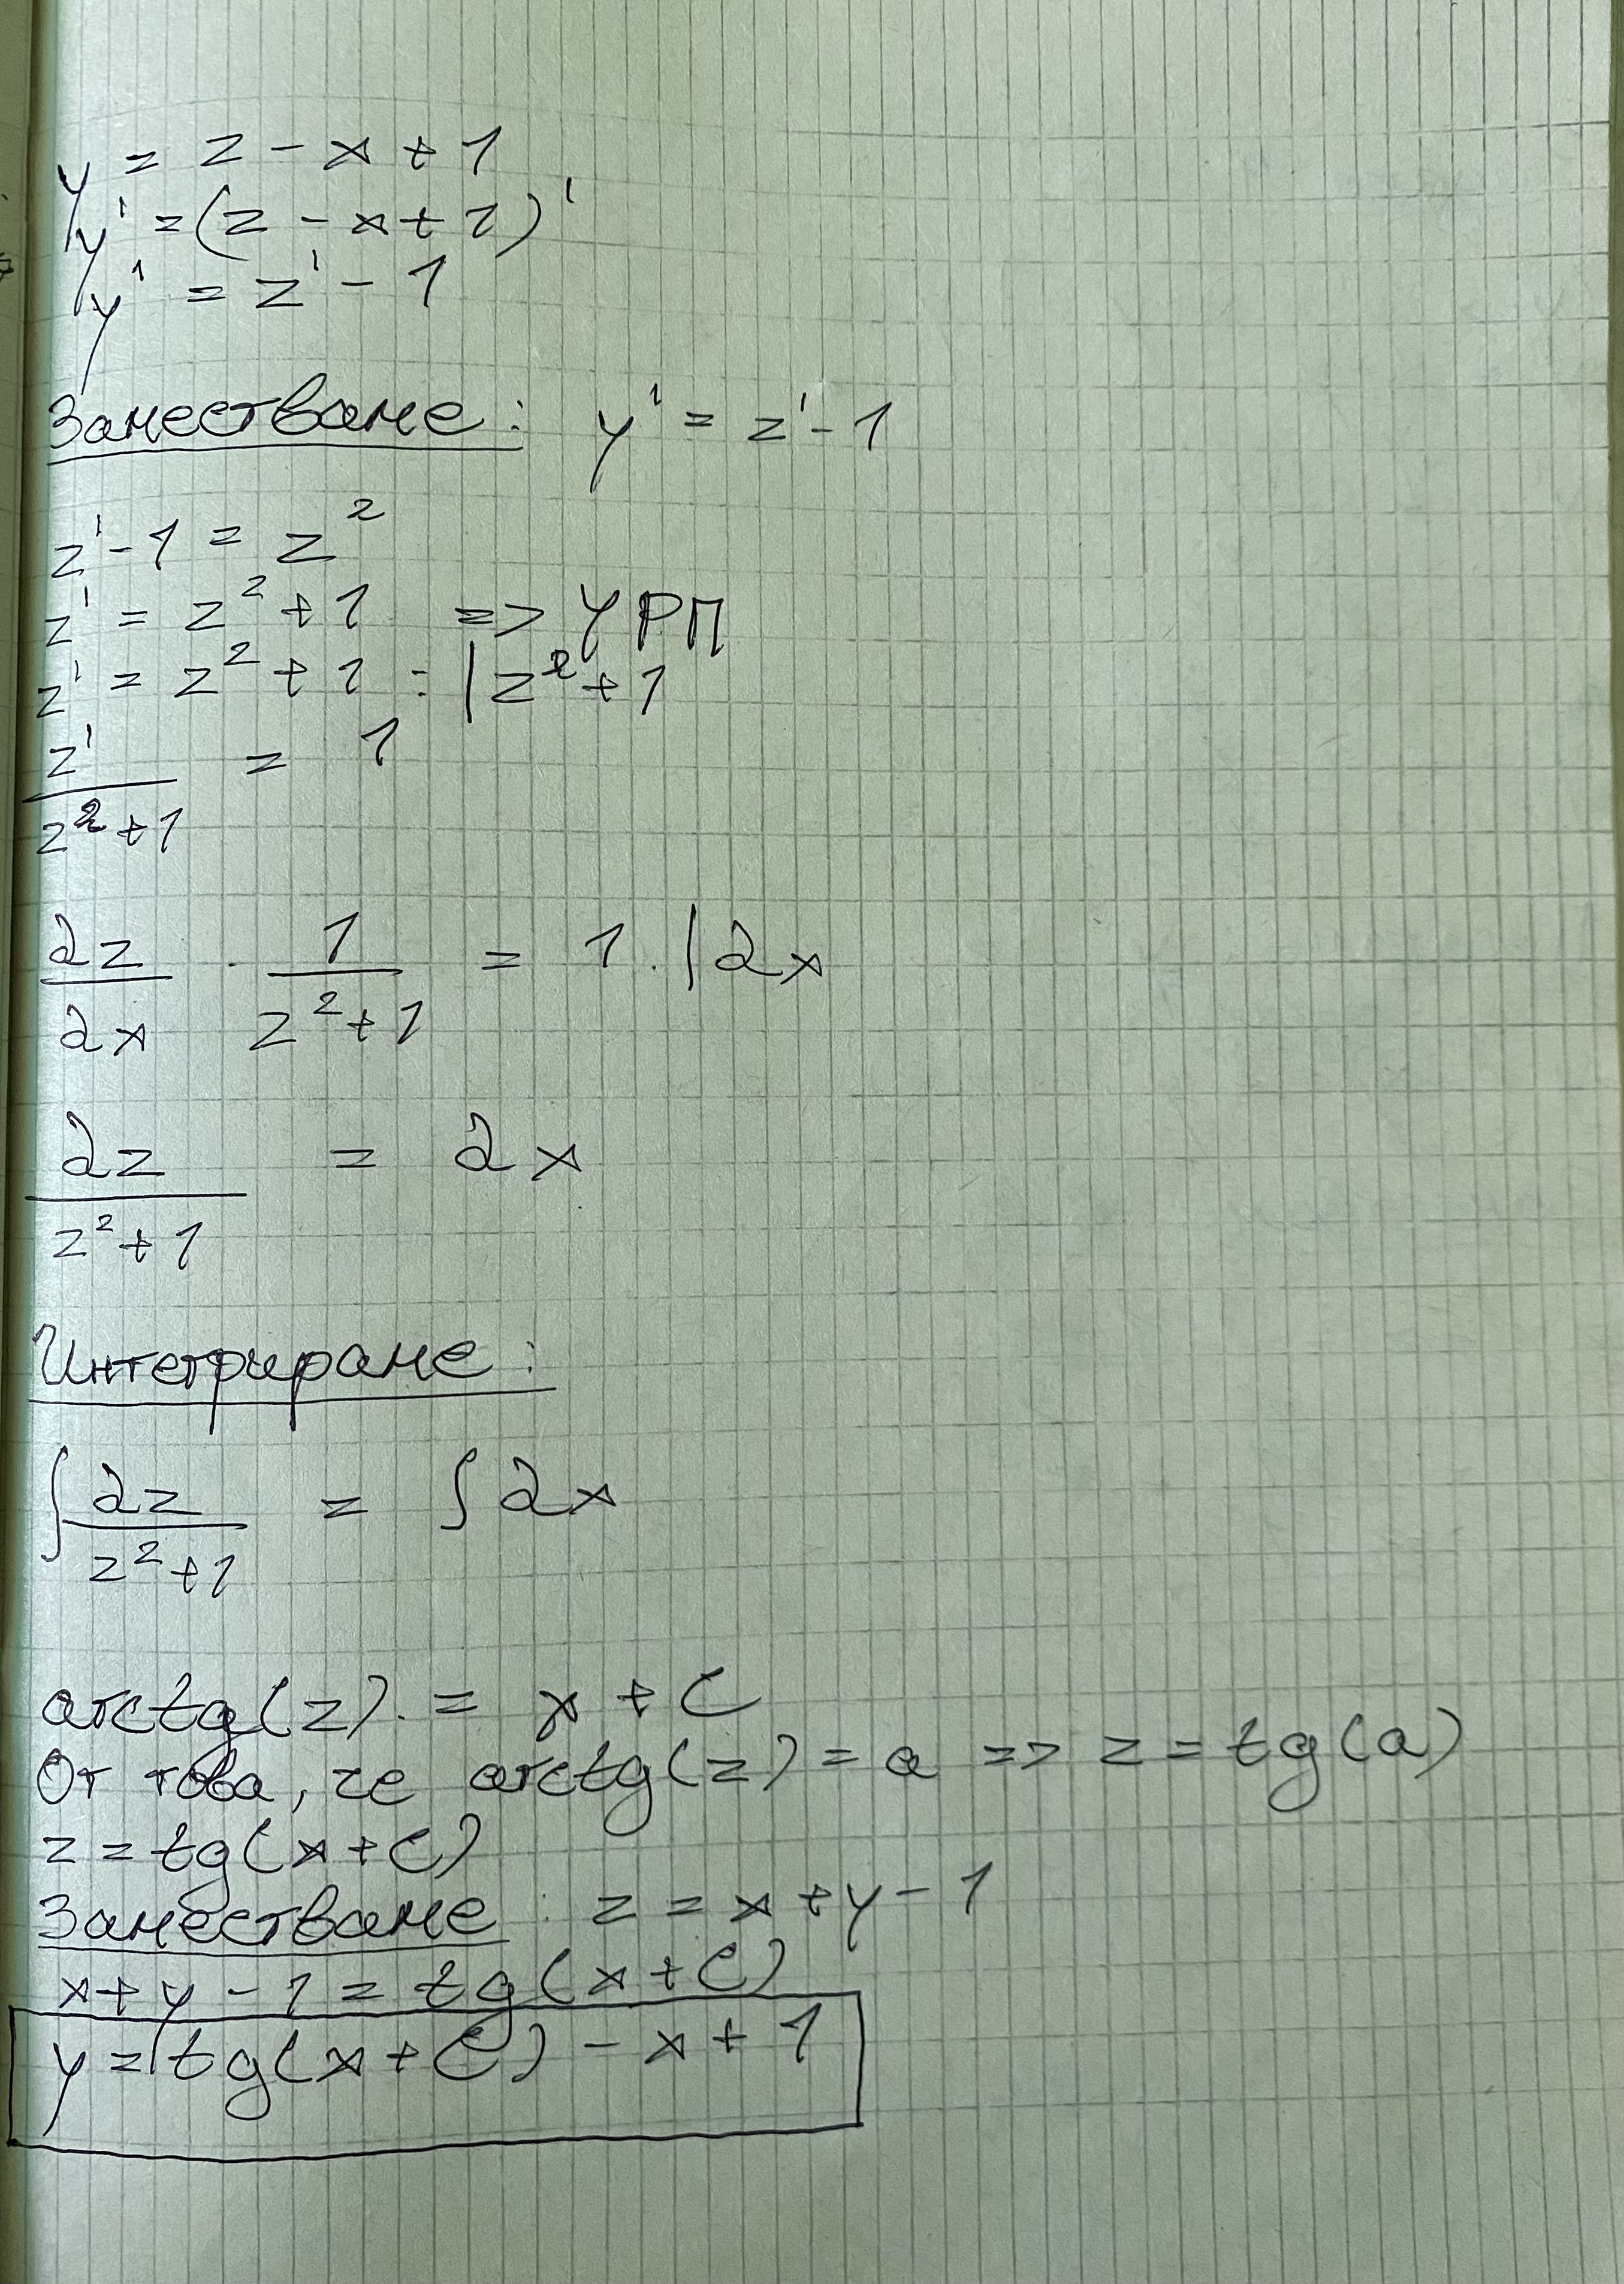 y = z - x + 1
y' = (z - x + 1)'
y' = z' - 1
Заместваме: y' = z' - 1
z' - 1 = z²
z' = z² + 1 => УРП
z' = z² + 1 : | z² + 1
z' / (z² + 1) = 1
dz/dx . 1/(z² + 1) = 1 . | dx
dz / (z² + 1) = dx
Интегрираме:
∫ dz / (z² + 1) = ∫ dx
arctg(z) = x + C
От това, че arctg(z) = a => z = tg(a)
z = tg(x + C)
Заместваме : z = x + y - 1
x + y - 1 = tg(x + C)
y = tg(x + C) - x + 1